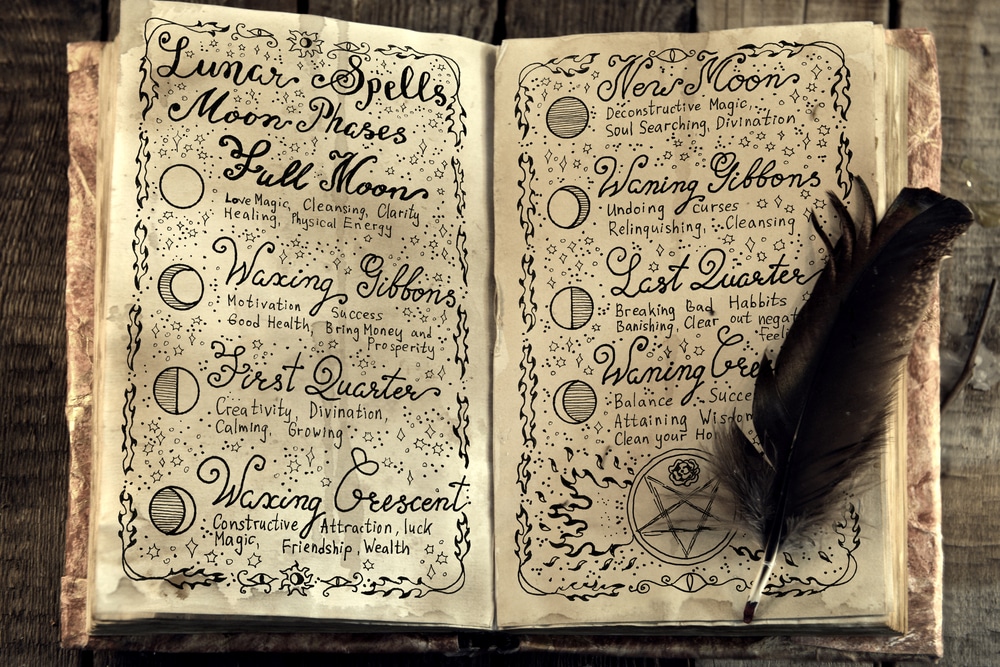 Lunar Spells
Moon Phases
Full Moon
Love Magic, Cleansing, Clarity
Healing, Physical Energy
Waxing Gibbons
Motivation Success
Good Health, Bring Money and
Prosperity
First Quarter
Creativity, Divination,
Calming, Growing
Waxing Crescent
Constructive Attraction, luck
Magic, Friendship, Wealth
New Moon
Deconstructive Magic,
Soul Searching, Divination
Waning Gibbons
Undoing curses
Relinquishing, Cleansing
Last Quarter
Breaking Bad Habbits
Banishing, Clear out negat
feel
Waning Cre
Balance Succe
Attaining Wisdom
Clean your Ho